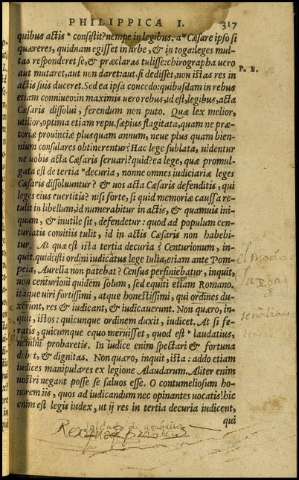 PHILIPPICA I. 317
quibus actis * consistit? nempe in legibus. a* Cæsare ipso si
quæreres, quidnam egisset in vrbe, & in toga: leges mul-
tas responderet se, & præclaras tulisse: chirographa uero
aut mutaret, aut non daret: aut, si dedisset, non istas res in
actis suis duceret. Sed ea ipsa concedo: quibusdam in rebus
etiam conniueo: in maximis uero rebus, id est, legibus, acta
Cæsaris dissolui, ferendum non puto. Quæ lex melior,
utilior, optima etiam rep. sæpius flagitata, quam ne præ-
toriæ prouinciæ plus quam annum, neue plus quam bien-
nium consulares obtinerentur? Hac lege sublata, uidentur
ne uobis acta Cæsaris seruari? quid? ea lege, quæ promul-
gata est de tertia * decuria, nonne omnes iudiciariæ leges
Cæsaris dissoluuntur? & uos acta Cæsaris defenditis, qui
leges eius euertitis? nisi forte, si quid memoriæ caussa re-
tulit in libellum, id numerabitur in actis, & quamuis ini-
quum, & inutile sit, defendetur: quod ad populum cen-
turiatis comitiis tulit, id in actis Cæsaris non habebi-
tur. At quæ est ista tertia decuria? Centurionum, in-
quit. quid? isti ordini iudicatus lege Iulia, etiam ante Pom-
peia, Aurelia non patebat? Census perfiniebatur, inquit,
non centurioni quidem solum, sed equiti etiam Romano.
itaque uiri fortissimi, atque honestissimi, qui ordines du-
xerunt, res & iudicant, & iudicauerunt. Non quæro, in-
quit, istos: quicunque ordinem duxit, iudicet. At si fer-
ratis, quicumque equo meruisset, quod est * laudatius,
nemini probaretis. In iudice enim spectari & fortuna
debet, & dignitas. Non quæro, inquit, ista: addo etiam
iudices manipulares ex legione Alaudarum. Aliter enim
nostri negant posse se saluos esse. O contumeliosum ho-
norem iis, quos ad iudicandum nec opinantes uocatis! hic
enim est legis index, ut ij res in tertia decuria iudicent,
qui
P. R.